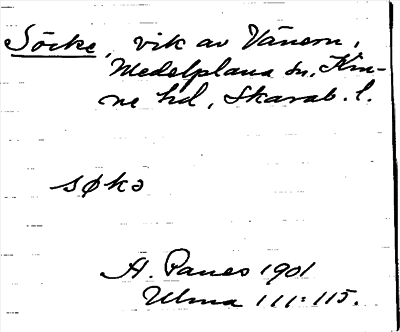 Söcke, vik av Vänern,
Medelplana sn, Kin-
ne hd, Skarab. l.
søkə
A. Panes 1901
Ulma 111:115.